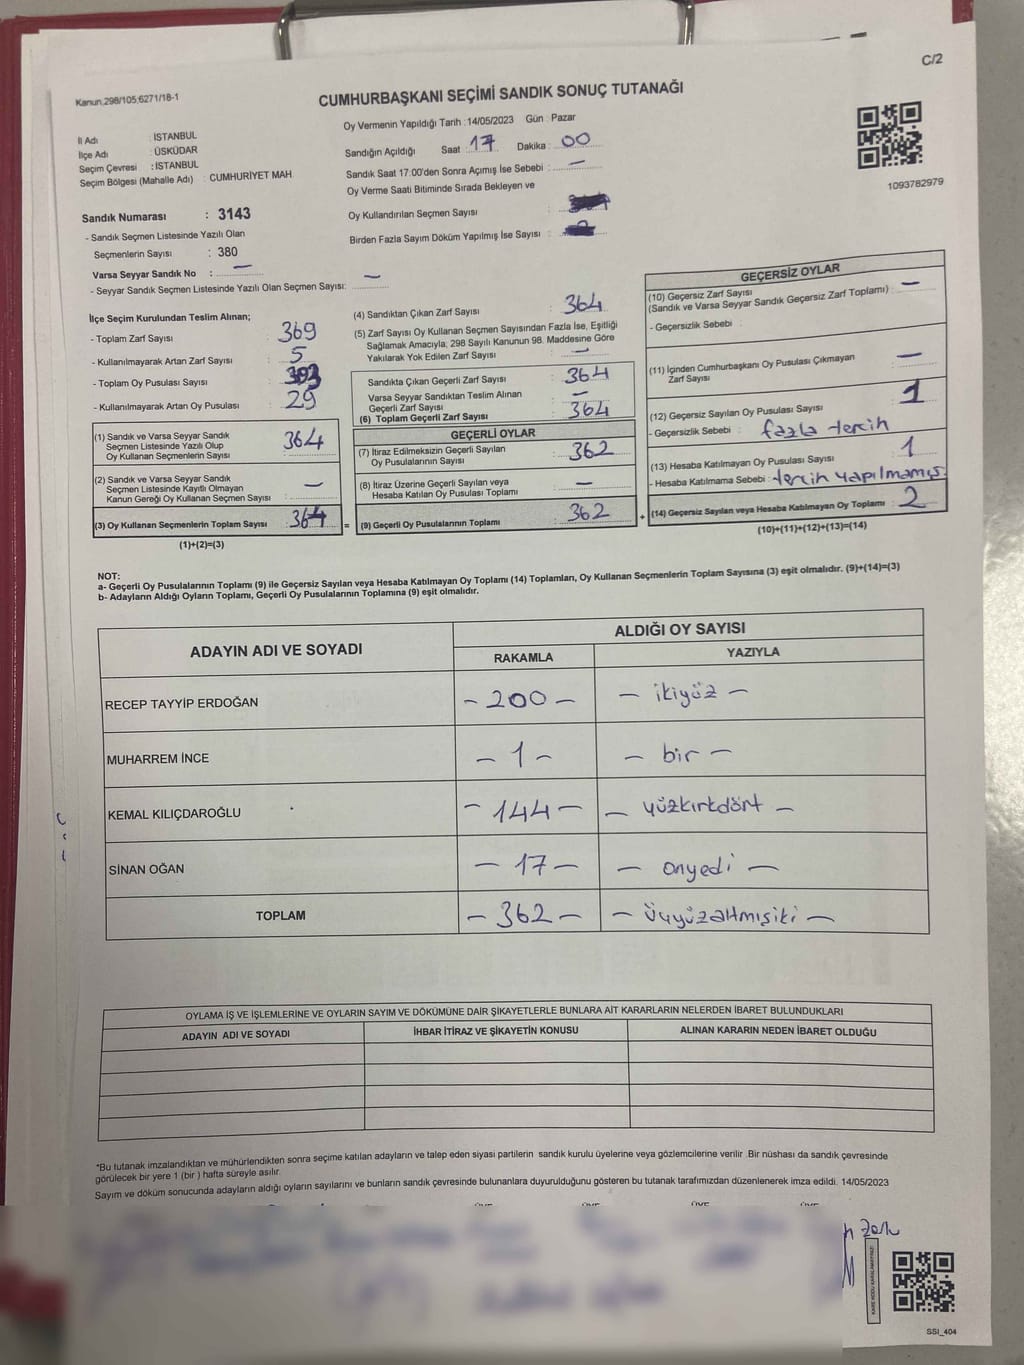 C/2
Kanun,298/105;6271/18-1
CUMHURBAŞKANI SEÇİMİ SANDIK SONUÇ TUTANAĞI
İl Adı : İSTANBUL
İlçe Adı : ÜSKÜDAR
Seçim Çevresi : İSTANBUL
Seçim Bölgesi (Mahalle Adı) : CUMHURİYET MAH.
Oy Vermenin Yapıldığı Tarih :14/05/2023 Gün : Pazar
Sandığın Açıldığı Saat : 17 Dakika : 00
Sandık Saat 17:00'den Sonra Açımış İse Sebebi : —
Oy Verme Saati Bitiminde Sırada Bekleyen ve
Oy Kullandırılan Seçmen Sayısı :
Birden Fazla Sayım Döküm Yapılmış İse Sayısı :
1093782979
Sandık Numarası : 3143
- Sandık Seçmen Listesinde Yazılı Olan
Seçmenlerin Sayısı : 380
Varsa Seyyar Sandık No : —
- Seyyar Sandık Seçmen Listesinde Yazılı Olan Seçmen Sayısı: —
İlçe Seçim Kurulundan Teslim Alınan;
- Toplam Zarf Sayısı : 369
- Kullanılmayarak Artan Zarf Sayısı : 5
- Toplam Oy Pusulası Sayısı :
- Kullanılmayarak Artan Oy Pusulası : 29
(1) Sandık ve Varsa Seyyar Sandık
Seçmen Listesinde Yazılı Olup
Oy Kullanan Seçmenlerin Sayısı : 364
(2) Sandık ve Varsa Seyyar Sandık
Seçmen Listesinde Kayıtlı Olmayan
Kanun Gereği Oy Kullanan Seçmen Sayısı : —
(3) Oy Kullanan Seçmenlerin Toplam Sayısı : 364
(1)+(2)=(3)
(4) Sandıktan Çıkan Zarf Sayısı : 364
(5) Zarf Sayısı Oy Kullanan Seçmen Sayısından Fazla İse, Eşitliği
Sağlamak Amacıyla, 298 Sayılı Kanunun 98. Maddesine Göre
Yakılarak Yok Edilen Zarf Sayısı : —
Sandıkta Çıkan Geçerli Zarf Sayısı : 364
Varsa Seyyar Sandıktan Teslim Alınan
Geçerli Zarf Sayısı : —
(6) Toplam Geçerli Zarf Sayısı : 364
GEÇERLİ OYLAR
(7) İtiraz Edilmeksizin Geçerli Sayılan
Oy Pusulalarının Sayısı : 362
(8) İtiraz Üzerine Geçerli Sayılan veya
Hesaba Katılan Oy Pusulası Toplamı : —
= (9) Geçerli Oy Pusulalarının Toplamı : 362 +
GEÇERSİZ OYLAR
(10) Geçersiz Zarf Sayısı
(Sandık ve Varsa Seyyar Sandık Geçersiz Zarf Toplamı) : —
- Geçersizlik Sebebi :
(11) İçinden Cumhurbaşkanı Oy Pusulası Çıkmayan
Zarf Sayısı : —
(12) Geçersiz Sayılan Oy Pusulası Sayısı : 1
- Geçersizlik Sebebi : fazla tercih
(13) Hesaba Katılmayan Oy Pusulası Sayısı : 1
- Hesaba Katılmama Sebebi : tercih yapılmamış.
(14) Geçersiz Sayılan veya Hesaba Katılmayan Oy Toplamı : 2
(10)+(11)+(12)+(13)=(14)
NOT:
a- Geçerli Oy Pusulalarının Toplamı (9) ile Geçersiz Sayılan veya Hesaba Katılmayan Oy Toplamı (14) Toplamları, Oy Kullanan Seçmenlerin Toplam Sayısına (3) eşit olmalıdır. (9)+(14)=(3)
b- Adayların Aldığı Oyların Toplamı, Geçerli Oy Pusulalarının Toplamına (9) eşit olmalıdır.
ADAYIN ADI VE SOYADI ALDIĞI OY SAYISI
RAKAMLA YAZIYLA
RECEP TAYYİP ERDOĞAN - 200 - - ikiyüz -
MUHARREM İNCE - 1 - - bir -
KEMAL KILIÇDAROĞLU - 144 - - yüzkırkdört -
SİNAN OĞAN - 17 - - onyedi -
TOPLAM - 362 - - üçyüzaltmışiki -
OYLAMA İŞ VE İŞLEMLERİNE VE OYLARIN SAYIM VE DÖKÜMÜNE DAİR ŞİKAYETLERLE BUNLARA AİT KARARLARIN NELERDEN İBARET BULUNDUKLARI
ADAYIN ADI VE SOYADI İHBAR İTİRAZ VE ŞİKAYETİN KONUSU ALINAN KARARIN NEDEN İBARET OLDUĞU
*Bu tutanak imzalandıktan ve mühürlendikten sonra seçime katılan adayların ve talep eden siyasi partilerin sandık kurulu üyelerine veya gözlemcilerine verilir .Bir nüshası da sandık çevresinde
görülecek bir yere 1 (bir ) hafta süreyle asılır.
Sayım ve döküm sonucunda adayların aldığı oyların sayılarını ve bunların sandık çevresinde bulunanlara duyurulduğunu gösteren bu tutanak tarafımızdan düzenlenerek imza edildi. 14/05/2023
ÜYE ÜYE ÜYE ÜYE
SSI_404